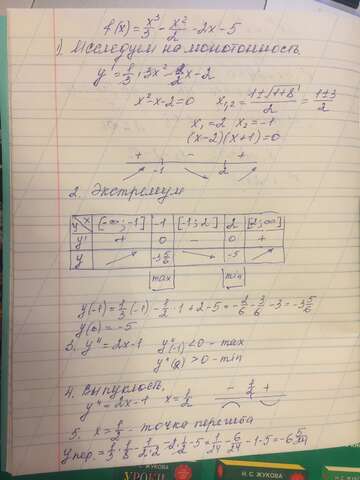 f(x) = x³/3 - x²/2 - 2x - 5
1) Исследуем на монотонность
y' = 1/3 · 3x² - 2/2 x - 2
x² - x - 2 = 0 x₁,₂ = (1±√1+8)/2 = (1±3)/2
x₁ = 2 x₂ = -1
(x-2)(x+1) = 0
+ - +
-1 2
2. Экстремум
y x [-∞;-1] -1 [-1;2] 2 [2;∞]
y' + 0 - 0 +
y ↗ -3 5/6 ↘ -5 ↗
max min
y(-1) = 1/3(-1) - 1/2 · 1 + 2 - 5 = -2/6 - 3/6 - 3 = -3 5/6
y(0) = -5
3. y'' = 2x - 1 y''(-1) < 0 - max
y''(2) > 0 - min
4. Выпуклость,
y'' = 2x - 1 x = 1/2 - 1/2 +
5. x = 1/2 - точка перегиба
y пер. = 1/3 · 1/8 - 1/2·2 - 2 · 1/2 - 5 = 1/24 - 6/24 - 1 - 5 = -6 5/24
С. ЖУКОВА
УРОКИ
Н. С. ЖУКОВА